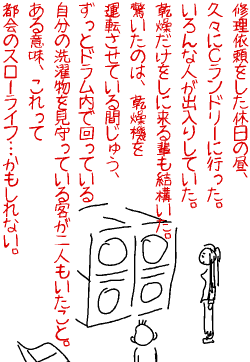 修理依頼をした休日の昼、
久々にCランドリーに行った。
いろんな人が出入りしていた。
乾燥だけをしに来る輩も結構いた。
驚いたのは、乾燥機を
運転させている間じゅう、
ずっとドラム内で回っている
自分の洗濯物を見守っている客が二人もいたこと。
ある意味、これって
都会のスローライフ…かもしれない。